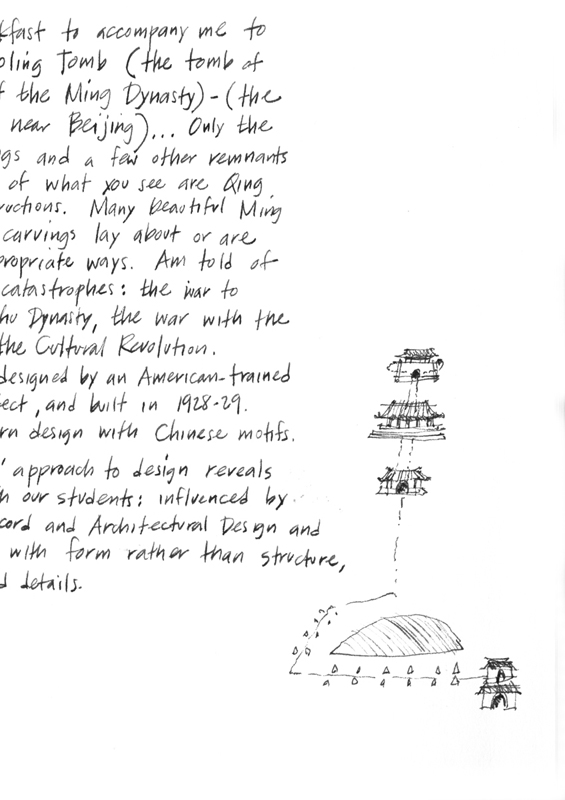 kfast to accompany me to
oling Tomb (the tomb of
f the Ming Dynasty)-(the
near Beijing)... Only the
gs and a few other remnants
of what you see are Qing
ructions. Many beautiful Ming
carvings lay about or are
propriate ways. Am told of
catastrophes: the war to
hu Dynasty, the war with the
the Cultural Revolution.
designed by an American-trained
ect, and built in 1928-29.
rn design with Chinese motifs.
' approach to design reveals
h our students: influenced by
cord and Architectural Design and
with form rather than structure,
d details.